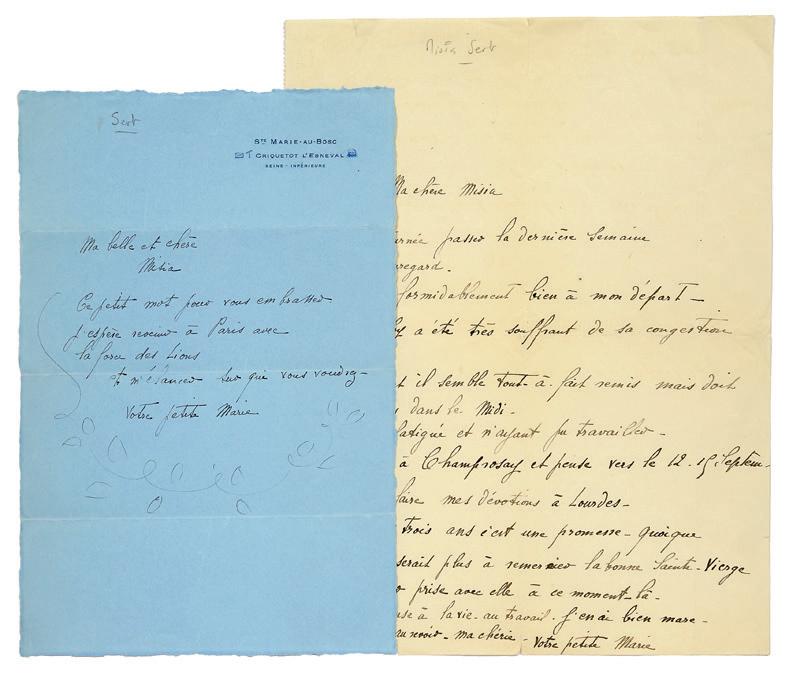 Sert
Ste MARIE-AU-BOSC
T CRIQUETOT L'ESNEVAL
SEINE-INFÉRIEURE
Ma belle et chère
Misia
Ce petit mot pour vous embrasser
J'espère revenir à Paris avec
la force des Lions
et m'élancer sur qui vous voudrez-
Votre petite Marie
Misia Sert
Ma chère Misia
passer la dernière Semaine
regard.
formidablement bien à mon départ-
a été très souffrant de sa congestion
il semble tout-à-fait remis mais doit
dans le Midi-
fatiguée et n'ayant pu travailler-
à Champrosay et pense vers le 12-15 Septem-
faire mes dévotions à Lourdes-
trois ans c'est une promesse- quoique
serait plus à remercier la bonne Sainte-Vierge
prise avec elle à ce moment-là-
à la vie- au travail. J'en ai bien mare-
au revoir- ma chérie- Votre petite Marie